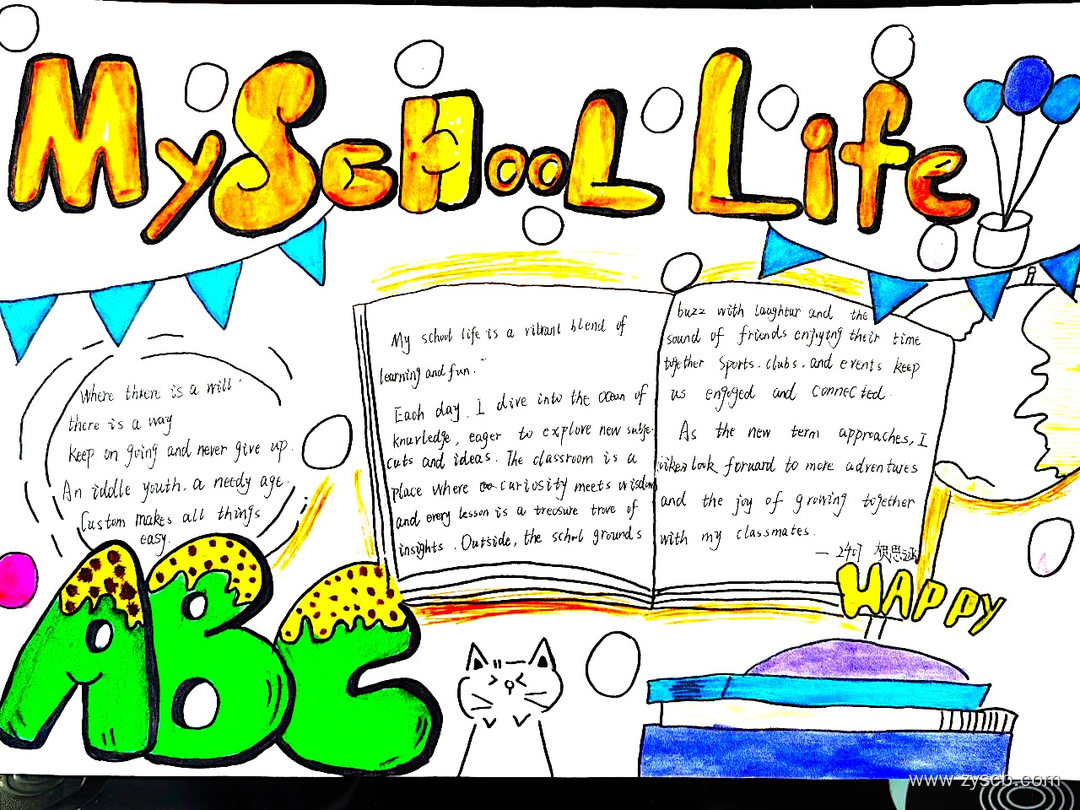 My ScHooL Life
Where threre is a will
there is a way
keep on going and never give up.
An iddle youth, a needy age.
Custom makes all things
easy.
My school life is a vibrant blend of
learning and fun."
Each day, I dive into the ocean of
knowledge, eager to explore new subje
cuts and ideas. The classroom is a
place where curiosity meets wisdom
and every lesson is a treasure trove of
insights. Outside, the school grounds
buzz with laughtur and the
sound of friends enjoying their time
together Sports, clubs, and events keep
us engaged and connected.
As the new term approaches, I
look forward to more adventures
and the joy of growing together
with my classmates.
ABC
HAPPY
www.zyscb.com